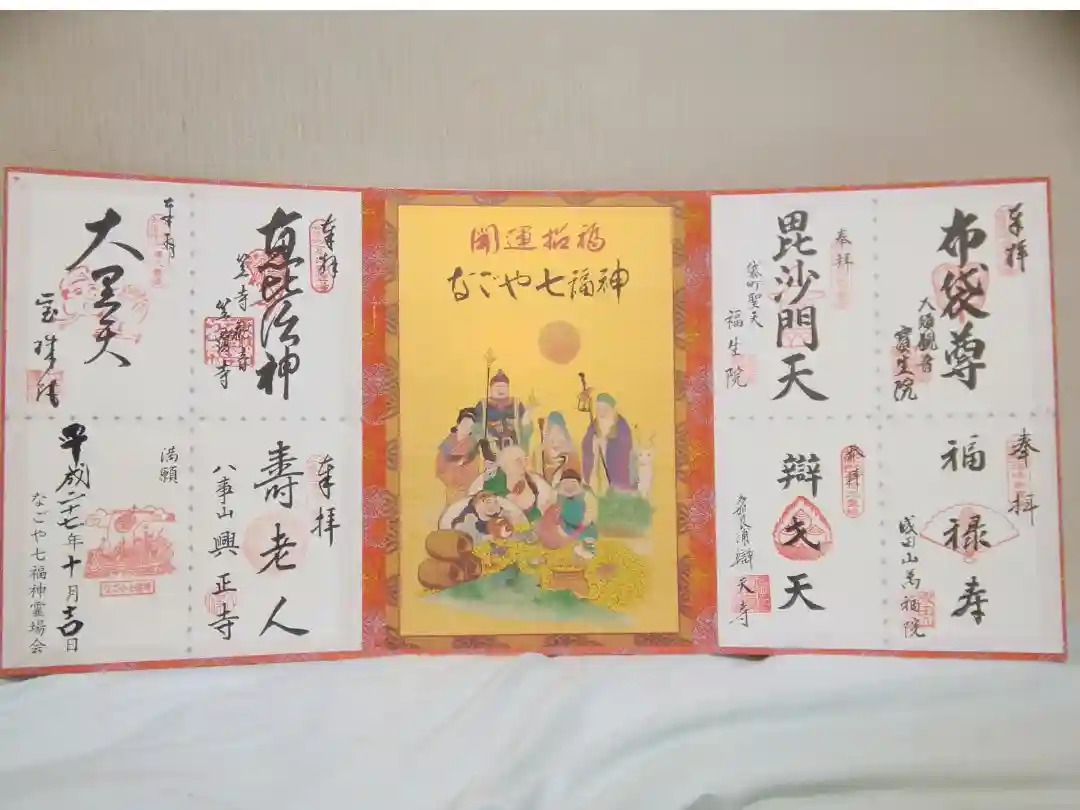 奉拝
布袋尊
大須観音
寳生院
奉拝
毘沙門天
袋町聖天
福生院
奉拝
福禄寿
成田山萬福院
奉拝
辯才天
辯天寺
開運招福
なごや七福神
奉拝
恵比須神
笠寺観音
笠覆寺
奉拝
大黒天
宝珠院
奉拝
寿老人
八事山興正寺
満願
なごや七福神
平成二十七年十月吉日
なごや七福神霊場会